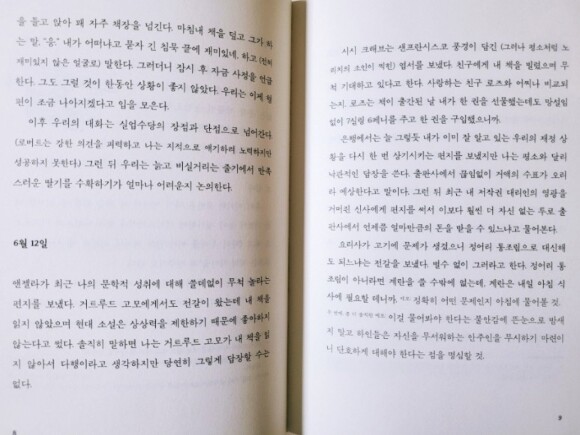 을 들고 앉아 꽤 자주 책장을 넘긴다. 마침내 책을 덮고 그가 하
는 말. "음." 내가 어떠냐고 묻자 긴 침묵 끝에 재미있네, 하고 (전혀
재미있지 않은 얼굴로) 말한다. 그러더니 잠시 후 자금 사정을 언급
한다. 그도 그럴 것이 한동안 상황이 좋지 않았다. 우리는 이제 형
편이 조금 나아지겠다고 입을 모은다.
이후 우리의 대화는 실업수당의 장점과 단점으로 넘어간다.
(로버트는 강한 의견을 피력하고 나는 지적으로 얘기하려 노력하지만
성공하지 못한다.) 그런 뒤 우리는 늙고 비실거리는 줄기에서 만족
스러운 딸기를 수확하기가 얼마나 어려운지 논의한다.
6월 12일
앤젤라가 최근 나의 문학적 성취에 대해 쓸데없이 무척 놀라는
편지를 보냈다. 거트루드 고모에게서도 전갈이 왔는데 내 책을
읽지 않았으며 현대 소설은 상상력을 제한하기 때문에 좋아하지
않는다고 했다. 솔직히 말하면 나는 거트루드 고모가 내 책을 읽
지 않아서 다행이라고 생각하지만 당연히 그렇게 답장할 수는
없다.
8
시시 크래브는 샌프란시스코 풍경이 담긴 (그러나 평소처럼 노
리치의 소인이 찍힌) 엽서를 보냈다. 친구에게 내 책을 빌렸으며 무
척 기대하고 있다고 한다. 사랑하는 친구 로즈와 어쩌나 비교되
는지. 로즈는 책이 출간된 날 내가 한 권을 선물했는데도 망설임
없이 7실링 6페니를 주고 한 권을 구입했으니까.
은행에서는 늘 그렇듯 내가 이미 잘 알고 있는 우리의 재정 상
황을 다시 한 번 상기시키는 편지를 보냈지만 나는 평소와 달리
낙관적인 답장을 쓴다. 출판사에서 끊임없이 거액의 수표가 오리
라 예상한다고 말이다. 그런 뒤 최근 내 저작권 대리인의 영광을
거머쥔 신사에게 편지를 써서 이보다 훨씬 더 자신 없는 투로 출
판사에서 언제쯤 얼마만큼의 돈을 받을 수 있느냐고 물어본다.
요리사가 고기에 문제가 생겼으니 정어리 통조림으로 대신해
도 되느냐는 전갈을 보냈다. 별수 없이 그러라고 한다. 정어리 통
조림이 아니라면 계란을 쓸 수밖에 없는데, 계란은 내일 아침 식
사에 필요할 테니까. 메모 정확히 어떤 문제인지 아침에 물어볼 것.
이걸 물어봐야 한다는 불안감에 뜬눈으로 밤새
지 말고 하인들은 자신을 무서워하는 안주인을 무시하기 마련이
니 단호하게 대해야 한다는 점을 명심할 것.
9